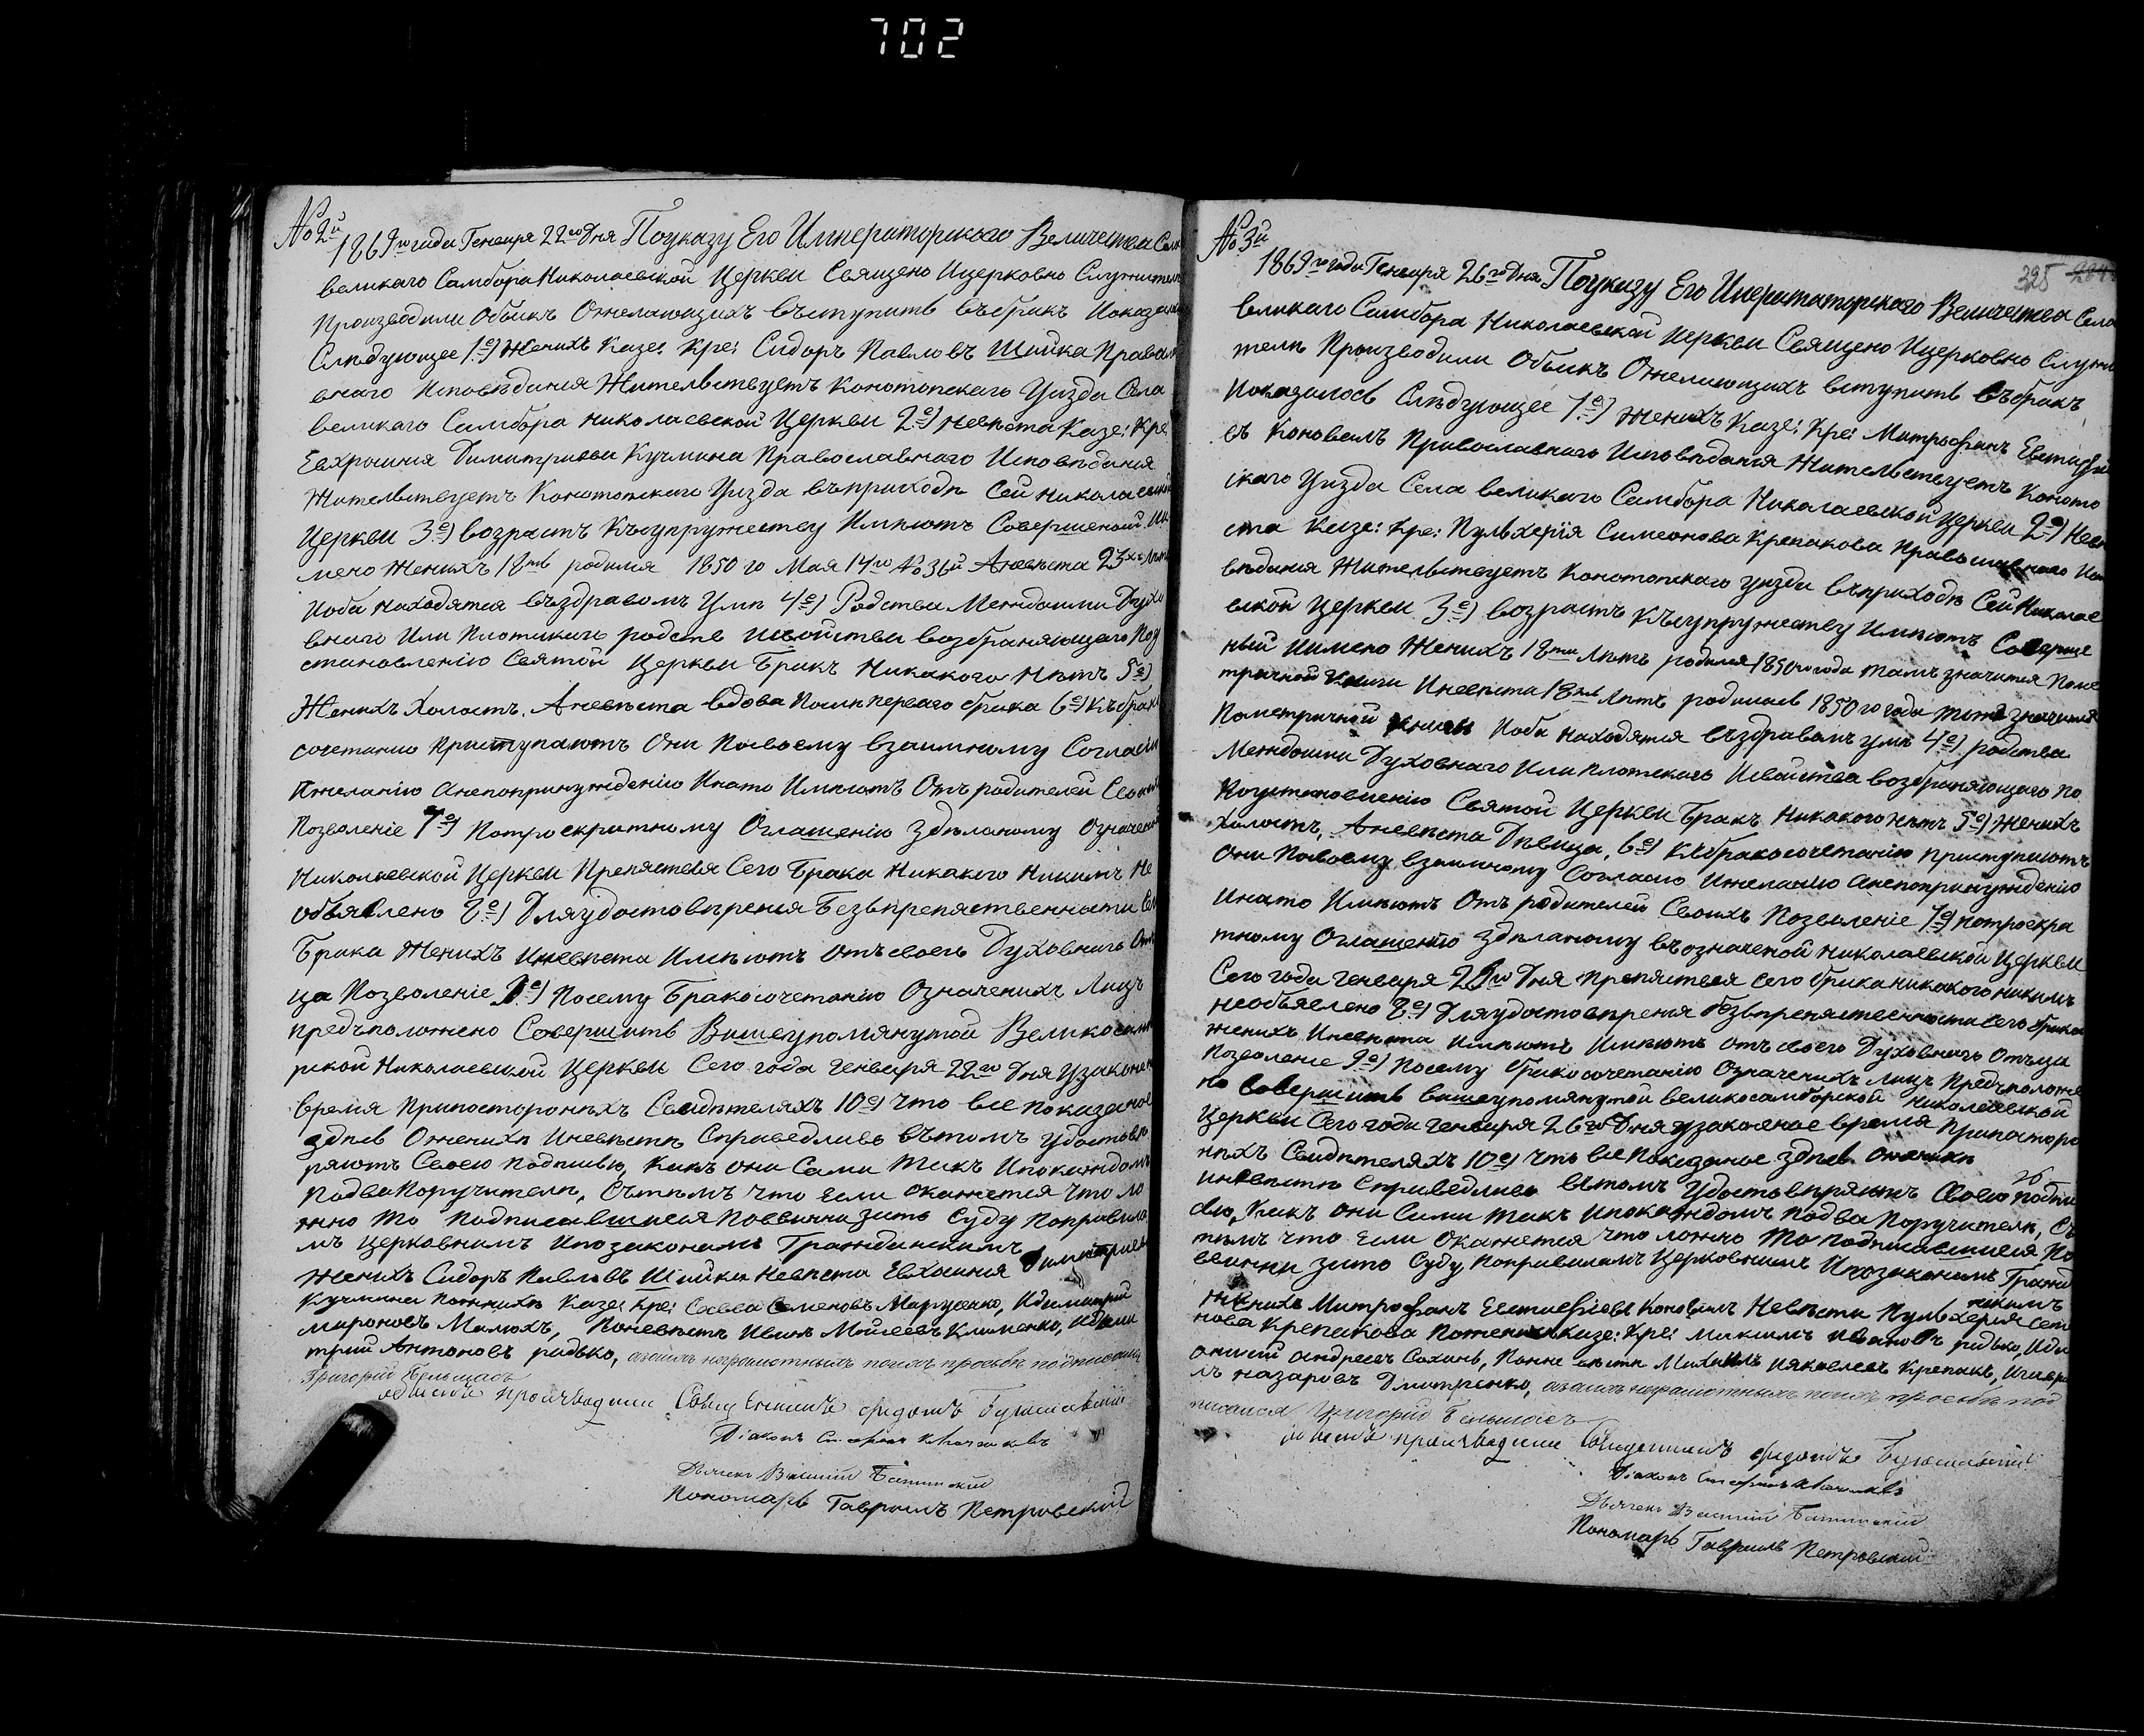 702
№ 2й
1869го года Генваря 22го Дня Поуказу Его Императорского Величества Села
великаго Самбора Николаевской Церкви Священо Ицерковно Служители
Производили Обыскъ Ожелающихъ вступить въбракъ Ипоказалось
Слѣдующее 1е) Женихъ Казе: Кре: Сидоръ Павловъ Шийка Православ
внаго Исповѣдания Жительствуетъ Конотопскаго Уизда Села
великаго Самбора николаевской Церкви 2е) невѣста Казе: Кре:
Евхросиния Димитриева Кучмина Православнаго Исповѣдания
Жительствуетъ Конотопскаго Уизда въприходѣ Сей николаевской
Церкви 3е) возрастъ Ксупружеству Имѣютъ Совершеной. Им
мено Женихъ 18ть родился 1850 го Мая 14го № 36й Аневѣста 23хъ Лѣтъ
Иоба находятся въздравомъ Умѣ 4е) Родства Междоими Духо
внаго Или Плотскаго родств исвойства возбраняющаго Поу
становлению Святой Церкви Бракъ Никакого Нѣтъ 5е)
Женихъ Холостъ. Аневѣста вдова Послѣ перваго брака 6е) Къбрако
сочетанию Приступаютъ Они Посвоему взаимному Согласию
Ижеланию Анепопринуждению Инато Имѣютъ Отъ родителей Своихъ
Позволение 7е) Потроекратному Оглашению Здѣланому Означеной
Николаевской Церкви Препяствия Сего Брака Никакого Никимъ Не
объявлено 8е) Для удостовѣрения Безвпрепяственности Сего
Брака Женихъ Иневѣста Имѣютъ отъ своего Духовнаго Отъ
ца Позволение 9е) Посему Бракосочетанию Означенихъ Лицъ
предъположено Совершить Вишеупомянутой Великосамбо
рской Николаевской Церкви Сего года Генваря 22го Дня Узаконеное
время Припосторонихъ Свидѣтеляхъ 10е) что все показаное
здѣсь Оженихѣ Иневѣстѣ Справедливо вътомъ удостовѣ
ряютъ Своею Подписью, Какъ они Сами Такъ Ипокаждомъ
Подва Поручителя, Сътѣмъ что Если окажется что ло
жно То Подписавшиеся Повинна зато Суду Поправила
мъ Церковнимъ Ипозаконамъ Гражданскимъ
Женихъ Сидоръ Павловъ Шийка Невѣста Евхосиния Димитриева
Кучмина Поженихѣ Казе: Кре: Савва Семеновъ Марусенко, Идимитрий
мироновъ Малюхъ, Поневѣстѣ Иванъ Мойсеевъ Клименко, Идими
трий Антоновъ ридько, азаихъ неграмотныхъ поихъ просьбе подписался
Григорий
обыскъ производили Священникъ
Дiаконъ
Дьячекъ Василий
Пономарь Гавриилъ Петровский
№ 3й
325
1869го года Генваря 26го Дня Поуказу Его Инператорского Величества Села
великаго Самбора Николаевской Церкви Священо Ицерковно Служи
тели Производили Обыскъ Ожелающихъ вступить въбракъ
Показалось Слѣдующее 1е) Женихъ Казе: Кре: Митрофанъ Евстафие
въ Коновалъ Православнаго Исповѣдания Жительствуетъ Коното
скаго Уизда Села великаго Самбора Николаевской Церкви 2е) Невѣ
ста Казе: Кре: Пульхерiя Симеонова Крепакова Православнаго Испо
вѣдания Жительствуетъ Конотопскаго уизда въприходѣ Сей Николае
вской Церкви 3е) возрастъ Ксупружеству Имѣютъ Соверше
ный Имено Женихъ 18ти лѣтъ родился 1850го года тамъ значится Поме
тричной книги Иневѣста 18ть Лѣтъ родилась 1850го года тоже значится
Пометричной книги Иоба находятся въздравомъ умѣ 4е) родства
Междоими Духовнаго Или плотскаго Исвойства возбраняющаго По
Поустановлению Святой Церкви Бракъ Никакого нѣтъ 5е) Женихъ
Холостъ, Аневѣста Дѣвица, 6е) Къбракосочетанию Приступаютъ
Они Посвоему взаимному Согласию Ижеланию Анепопринуждению
Инато Имѣютъ Отъ родителей Своихъ Позволение 7е) Потроекра
тному Оглашению Здѣланому въозначеной николаевской Церкви
Сего года Генваря Дня Препяствия сего брака никакого никимъ
необъявлено 8е) Для удостовѣрения безвпрепяственности сего брака
женихъ Иневѣста имѣютъ Имѣютъ отъ своего Духовнаго Отъца
Позволение 9е) Посему бракосочетанию Означенихъ лицъ Предъположе
но Совершить вишеупомянутой великосамборской николаевской
Церкви Сего года Генваря 26го Дня узаконеное время Припосторо
нихъ Свидѣтеляхъ 10е) что все Показаное здѣсь оженихѣ
иневѣстѣ Справедливо вътомъ Удостовѣряютъ Своею подпи
сью, Какъ они Сами Такъ Ипокаждомъ Подва Поручителя, Съ
тѣмъ что Если Окажется что ложно То Подписавшиеся По
винни зато Суду Поправиламъ Церковнимъ Ипозаконамъ Гражд
нскимъ
Женихъ Митрофанъ Евстафиевъ Коновалъ Невѣста Пульхерия Сем
нова Крепакова Поженихѣ Казе: Кре: Максимъ Ивановъ ридько, Иди
онисий Андреевъ Сахинъ, Поневѣстѣ Михаилъ Иякавлевъ Крепакъ, Игаври
лъ назаровъ Дмитренко, азаихъ неграмотныхъ поихъ просьбѣ под
писался Григорий
обыскъ производили Священникъ
Дiаконъ
Дьячекъ Василий
Пономарь Гавриилъ Петровский